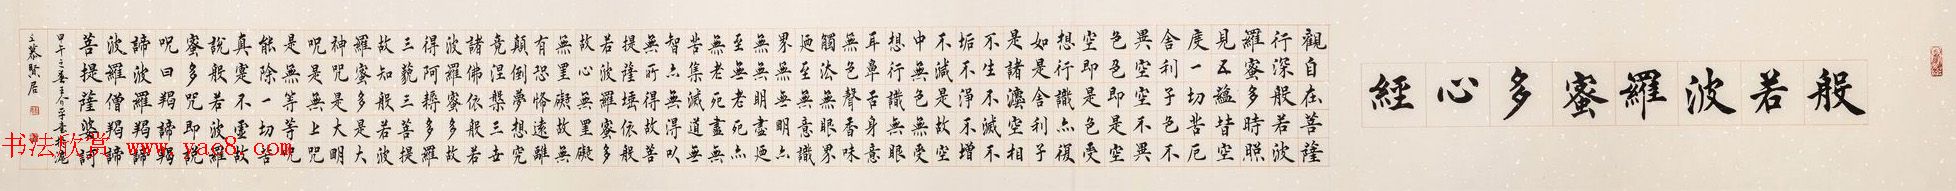 般若波羅蜜多心經
觀自在菩薩
行深般若波
羅蜜多時照
見五蘊皆空
度一切苦厄
舍利子色不
異空空不異
色色即是空
空即是色受
想行識亦復
如是舍利子
是諸灋空相
不生不滅不
垢不淨不增
不減是故空
中無色無受
想行識無眼
耳鼻舌身意
無色聲香味
觸法無眼界
廼至無意識
界無無明亦
無無明盡廼
至無老死亦
無老死盡無
苦集滅道無
智亦無得以
無所得故菩
提薩埵依般
若波羅蜜多
故心無罣礙
無罣礙故無
有恐怖遠離
顛倒夢想究
竟涅槃三世
諸佛依般若
波羅蜜多故
得阿耨多羅
三藐三菩提
故知般若波
羅蜜多是大
神咒是大明
咒是無上咒
是無等等咒
能除一切苦
真實不虛故
說般若波羅
蜜多咒即說
咒曰羯諦羯
諦波羅羯諦
波羅僧羯諦
菩提薩婆訶
甲午之春
之慕賢居
书法欣赏 www.yac8.com